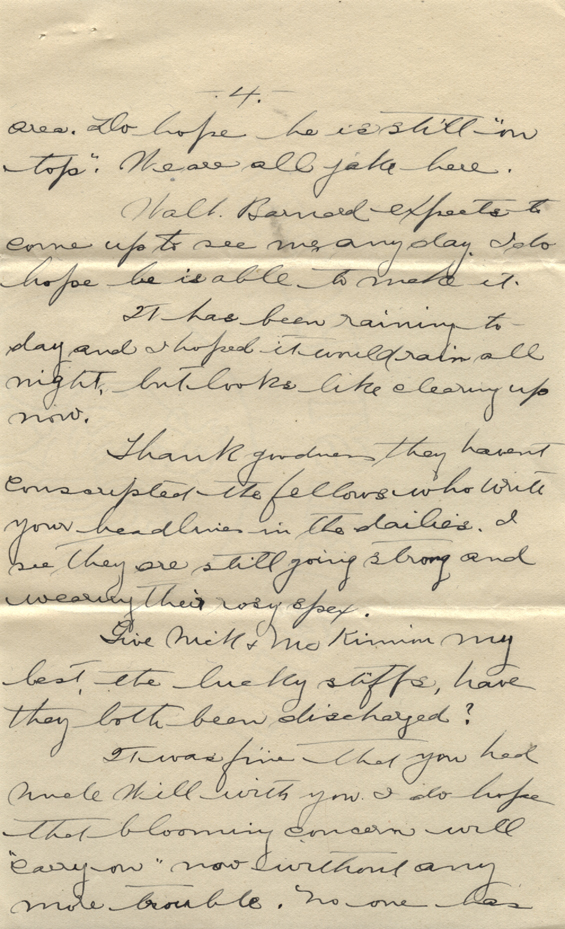 - 4. -
area. Do hope he is still "on
top". We are all jake here.
Walt. Barnard expects to
come up to see me any day. I do
hope he is able to make it.
It has been raining to-
day and I hoped it would rain all
night, but looks like clearing up
now.
Thank goodness they havent
conscripted the fellows who write
your headlines in the dailies. I
see they are still going strong and
wearing their rosy spex.
Give Nick & McKimim my
best, the lucky stiffs, have
they both been discharged?
It was fine that you had
Uncle Will with you. I do hope
that blooming concern will
"carry on" now without any
more trouble. No one has